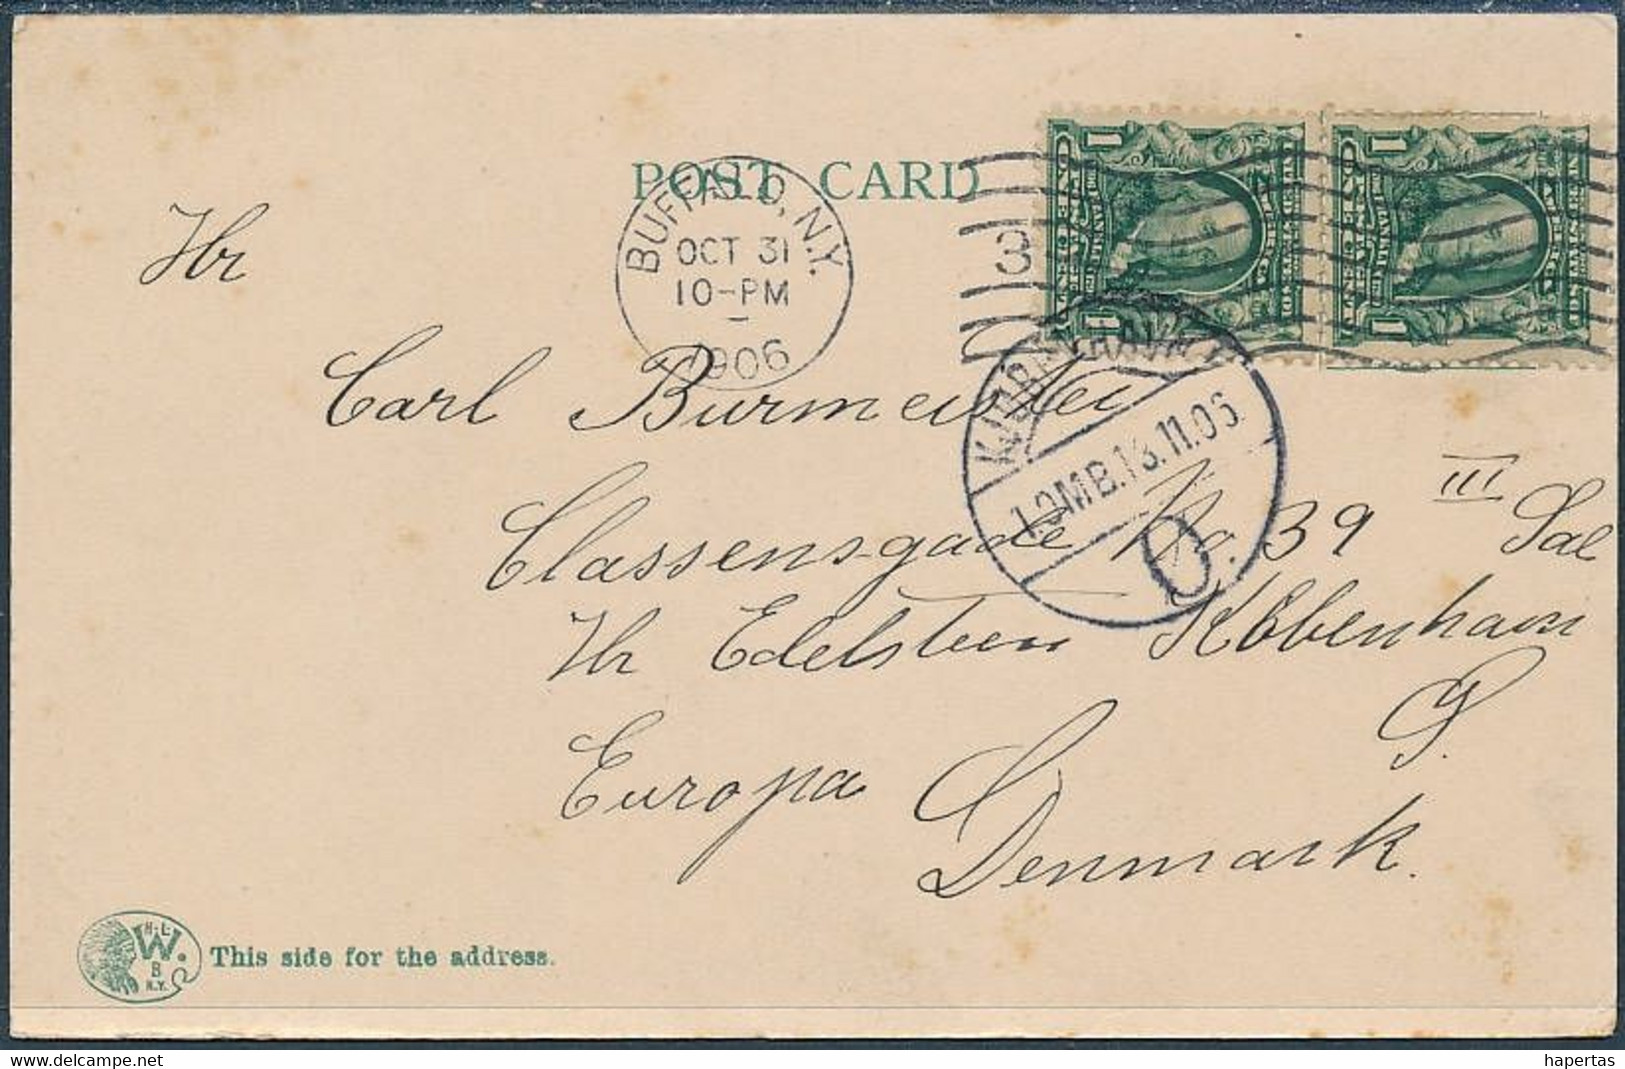 POST CARD
BUFFALO, N.Y.
OCT 31
10-PM
1906
3
Hr
Carl Burmeister
KJØBENHAVN
1.OMB.13.11.06.
O.
Classensgade No 39 III Sal
Hr Edelsteen København
Ø.
Europa Denmark.
H.L.
W.
B
N.Y.
This side for the address.
delcampe.net
hapertas